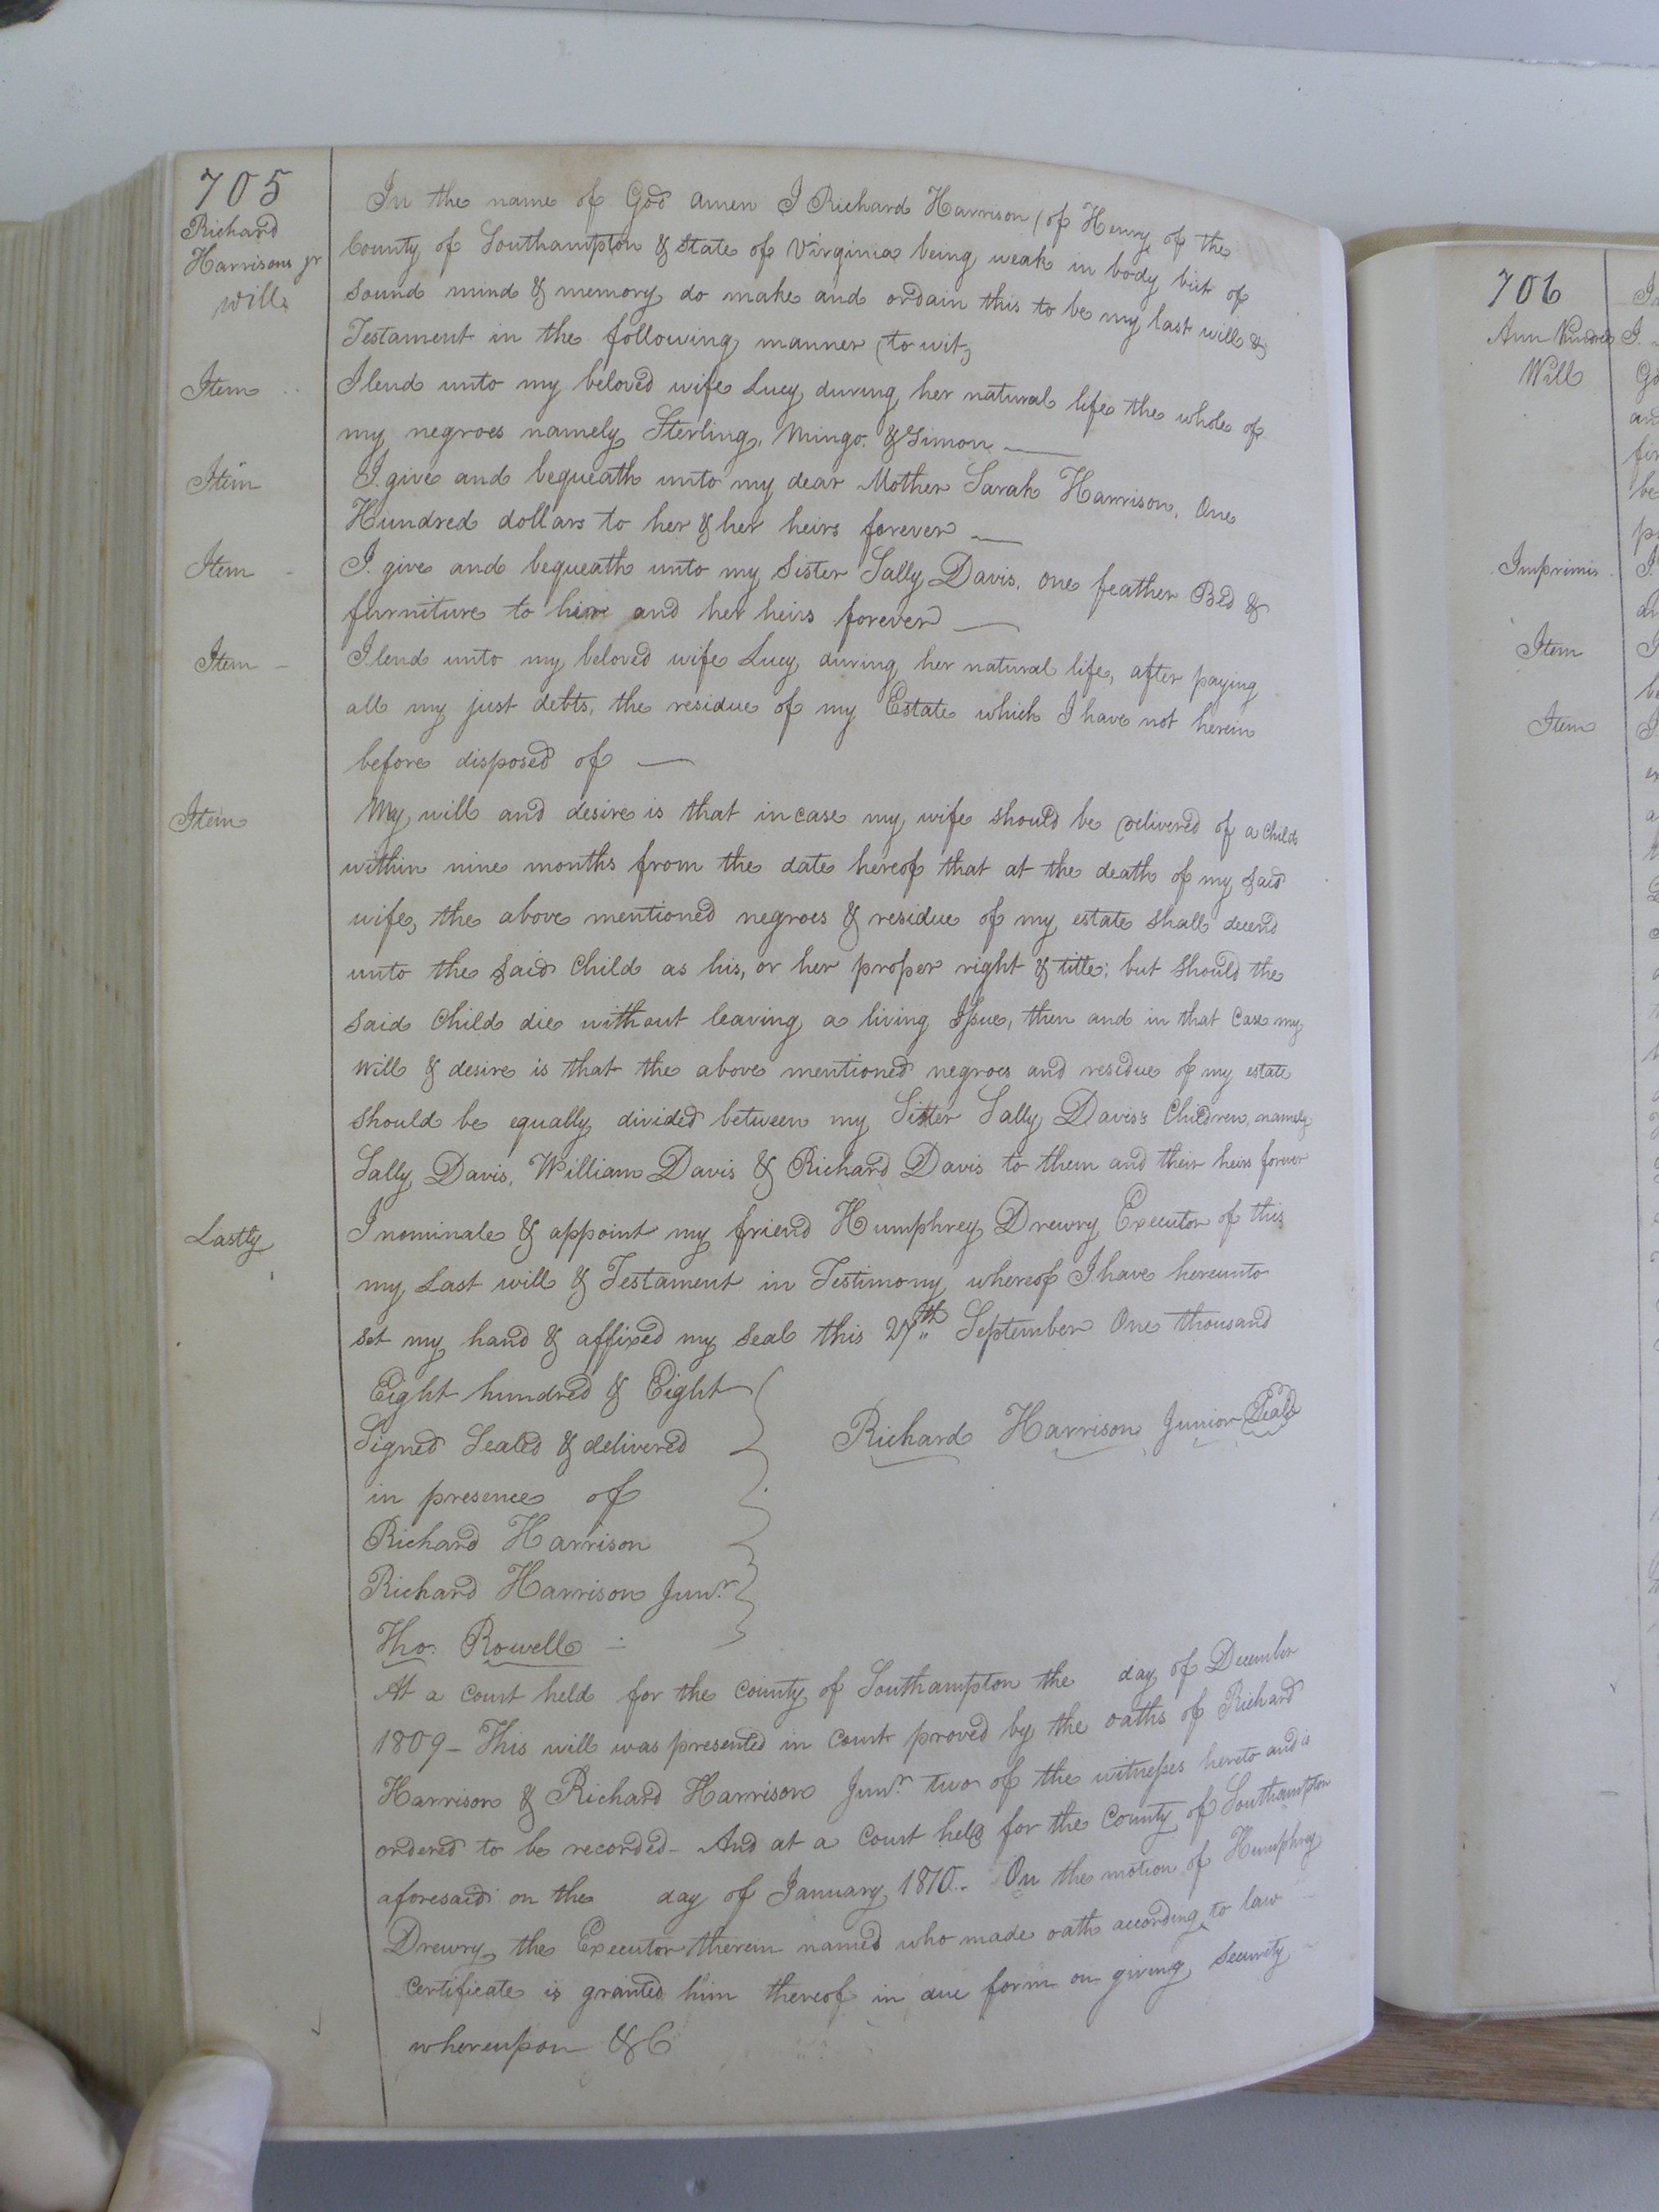 705
Richard
Harrisons jr
will
In the name of God amen I Richard Harrison (of Henry of the
County of Southampton & State of Virginia being weak in body but of
sound mind & memory do make and ordain this to be my last will &
Testament in the following manner (to wit)
Item
I lend unto my beloved wife Lucy during her natural life the whole of
my negroes namely Sterling, Mingo, & Simon —
Item
I. give and bequeath unto my dear Mother Sarah Harrison, One
Hundred dollars to her & her heirs forever —
Item -
I. give and bequeath unto my Sister Sally Davis, one feather Bed &
furniture to her and her heirs forever —
Item -
I lend unto my beloved wife Lucy during her natural life, after paying
all my just debts, the residue of my Estate which I have not herein
before disposed of —
Item
My will and desire is that in case my wife should be delivered of a child
within nine months from the date hereof that at the death of my said
wife, the above mentioned negroes & residue of my estate shall decend
unto the said Child as his, or her proper right & title; but should the
said Child die without leaving a living Issue, then and in that Case my
will & desire is that the above mentioned negroes and residue of my estate
should be equally divided between my Sister Sally Davis's Children, namely
Sally Davis, William Davis & Richard Davis to them and their heirs forever
Lastly
I nominate & appoint my friend Humphrey Drewry Executor of this
my Last will & Testament in Testimony whereof I have hereunto
set my hand & affixed my seal this 27th September One thousand
Eight hundred & Eight
Signed Sealed & delivered
Richard Harrison Junior Seal
in presence of
Richard Harrison
Richard Harrison Junr.
Tho: Rowell
At a Court held for the County of Southampton the day of December
1809 - This will was presented in Court proved by the oaths of Richard
Harrison & Richard Harrison Junr. two of the witnesses hereto and is
ordered to be recorded - And at a Court held for the County of Southampton
aforesaid on the day of January 1810 - On the motion of Humphrey
Drewry the Executor therein named who made oath according to law
Certificate is granted him thereof in due form on giving security
whereupon &C
706
Ann
Will
Imprimis
Item
Item